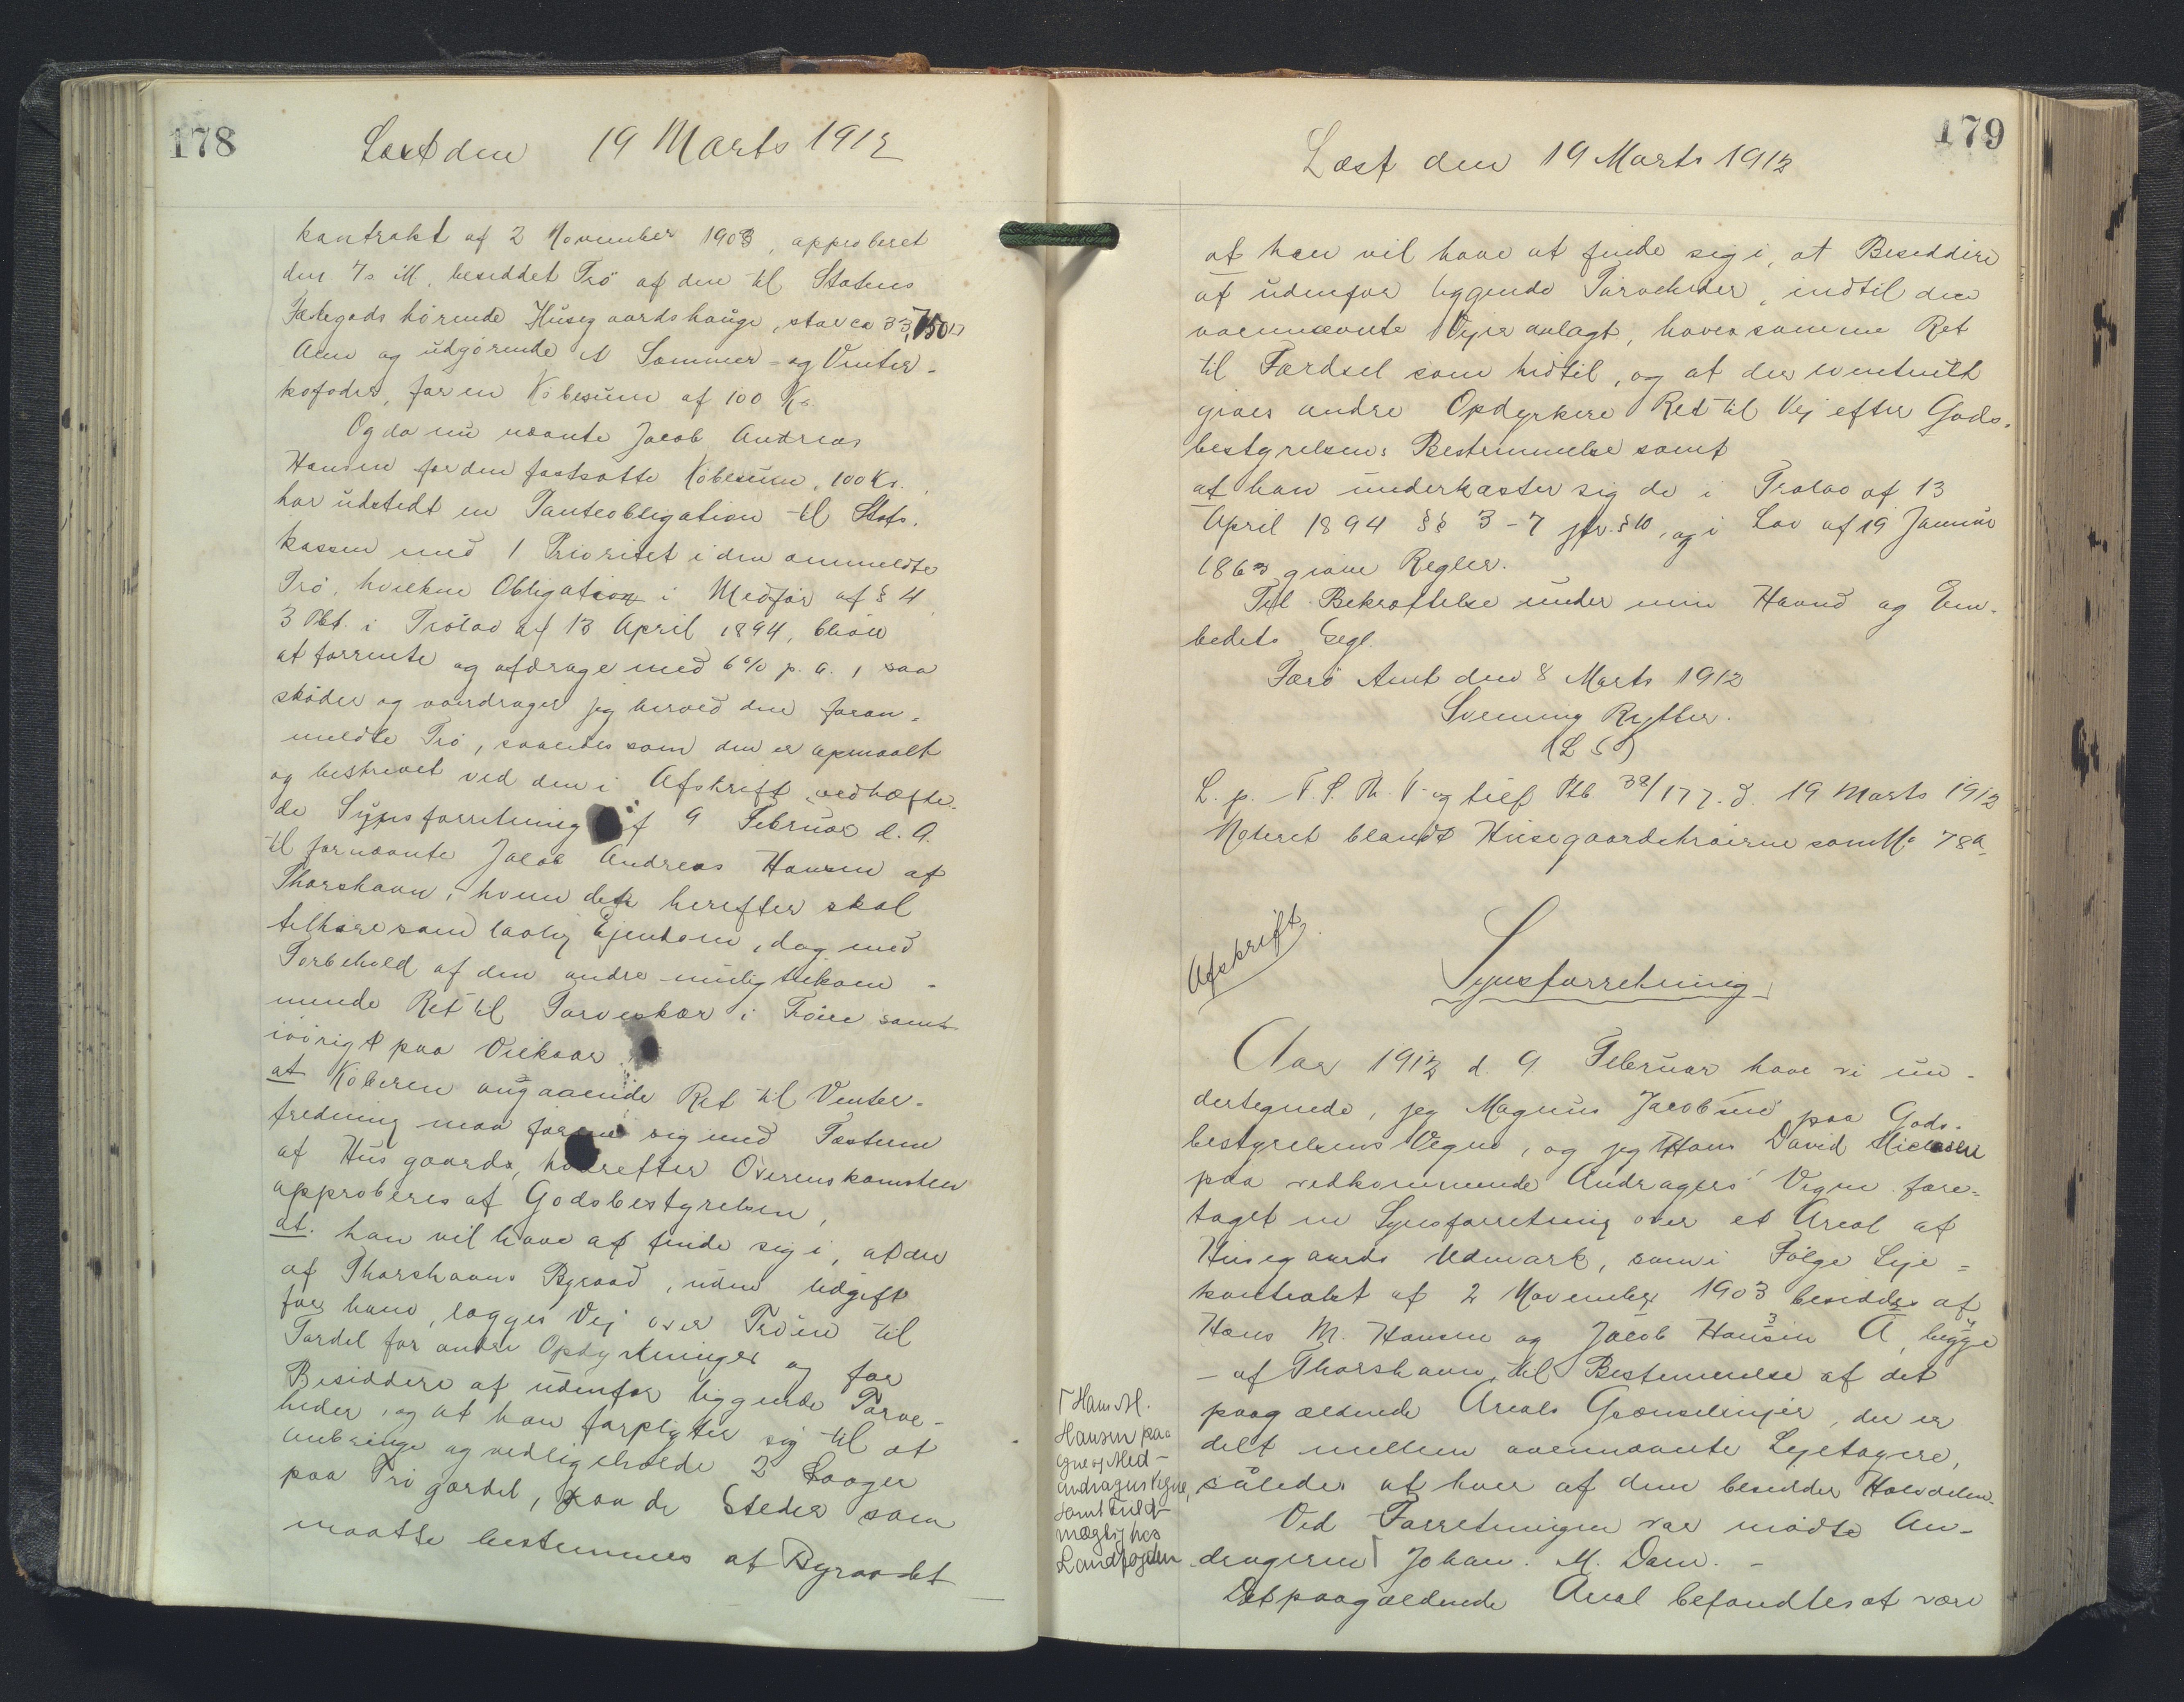 178
Læst den 19 Marts 1912
kontrakt af 2 November 1903, approberet
den 7 s. M. besiddet Trö af den til Statens
Fæstegods hörende Husegaardshauge, stor ca 33,750 □
Alen og udgörende et Sommer- og Vinter-
kofoder, for en Köbesum af 100 Kr.
Og da nu nævnte Jacob Andreas
Hansen for den fastsatte Köbesum, 100 Kr.,
har udstedt en Panteobligation til Stats-
kassen med 1 Prioritet i den ommeldte
Trö, hvilken Obligation i Medför af § 4
3 Pkt. i Trölov af 13 April 1894, bliver
at forrente og afdrage med 6 % p. a., saa
sköder og overdrager jeg herved den foran-
meldte Trö, saaledes som den er opmaalt
og beskrevet ved den i Afskrift vedhæfte-
de Synsforretning af 9 Februar d. A.
til fornævnte Jacob Andreas Hansen af
Thorshavn, hvem den herefter skal
tilhöre som lovlig Ejendom, dog med
Forbehold af den andre mulig tilkom-
mende Ret til Tørveskær i Tröen samt
iövrigt paa Vilkaar
at Köberen angaaende Ret til Vinter-
fredning maa forene sig med Fæsteren
af Husgaards, hvorefter Overenskomsten
approberes af Godsbestyrelsen,
at han vil have at finde sig i, at der
af Thorshavns Byraad, uden Udgift
for ham, lægges Vej over Tröen til
Fardel for andre Opdyrkninger og for
Besiddere af udenfor liggende Tørve-
heder, og at han forpligter sig til at
anbringe og vedligeholde 2 Laager
paa Trögærdet, paa de Steder som
maatte bestemmes af Byraadet
179
Læst den 19 Marts 1912
at han vil have at finde sig i, at Besiddere
af udenfor liggende Törveheder, indtil den
ovennævnte Vej er anlagt, haver samme Ret
til Færdsel som hidtil, og at der eventuelt
gives andre Opdyrkere Ret til Vej efter Gods-
bestyrelsens Bestemmelse samt
at han underkaster sig de i Trölov af 13
April 1894 §§ 3-7 jfr. § 10, og i Lov af 19 Januar
1863 givne Regler.
Til Bekræftelse under min Haand og Em-
bedets Segl.
Færö Amt den 8 Marts 1912
Svenning Rytter.
(L S)
L. p. F. S. Th. V. og tilf Ptb 38/177. d. 19 Marts 1912
Noteret blandt Husegaardströerne som No 78a
Afskrift.
Synsforretning
Aar 1912 d. 9 Februar have vi un-
dertegnede, jeg Magnus Jacobsen paa Gods-
bestyrelsens Vegne, og jeg Hans David
paa vedkommende Andragers Vegne fore-
taget en Synsforretning over et Areal af
Husegaards Udmark, som i Fölge Leje-
kontrakt af 2 November 1903 besiddes af
Hans M. Hansen og Jacob Hansen A, begge
- af Thorshavn, til Bestemmelse af det
paagældende Areals Grænselinjer, der er
delt mellem ovennævnte Lejetagere,
således at hver af dem besidder Halvdelen.
Ved Forretningen var mödte An-
drageren ⌈ Johan. M. Dam. -
Det paagældende Areal befandtes at være
⌈ Hans M.
Hansen paa
og Med-
andragers Vegne,
samt Fuld-
mægtig hos
Landfogden